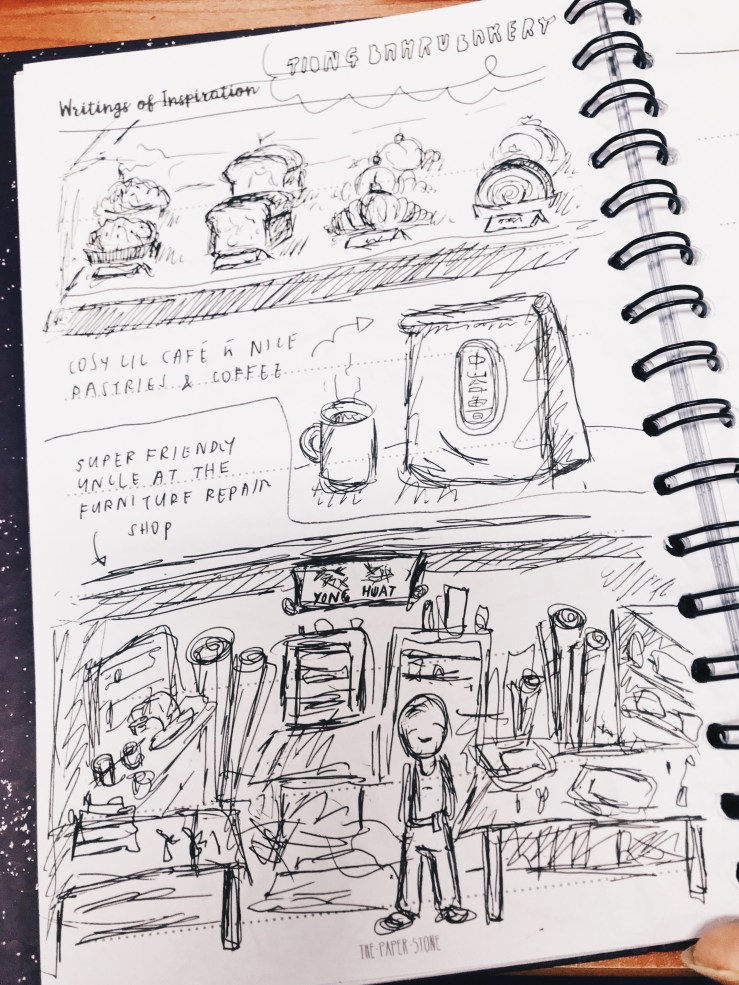 TIONG BAHRU BAKERY
Writings of Inspiration
COSY LIL CAFÉ ū NICE
PASTRIES & COFFEE
中峇魯
SUPER FRIENDLY
UNCLE AT THE
FURNITURE REPAIR
SHOP
YONG HUAT
THE·PAPER·STONE